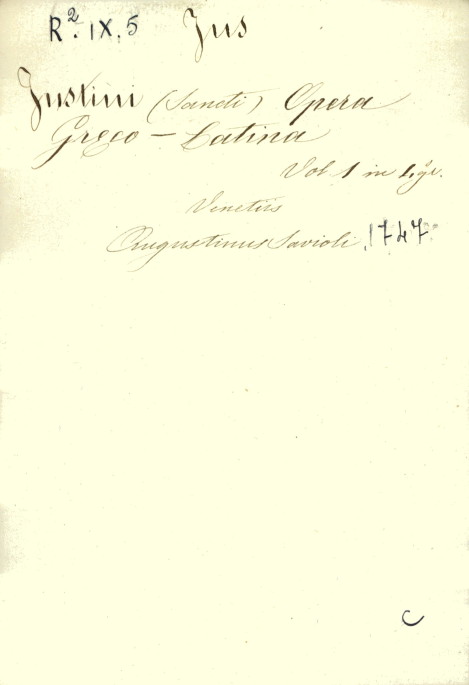 R². IX. 5 Jus
Justini (Sancti) Opera
Greco - Latina
Vol 1 in
Venetiis
Augustinus Savioli 1747
C